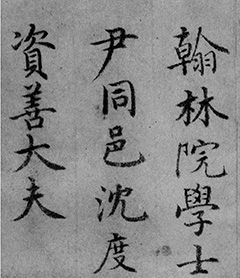 翰林院學士
尹同邑沈度
資善大夫